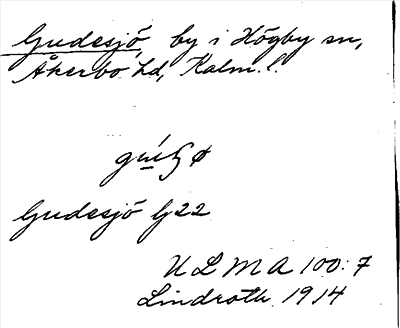 Gudesjö, by i Högby sn,
Åkerbo hd, Kalm. l.
Gudesjö G22
ULMA 100:7
Lindroth 1914